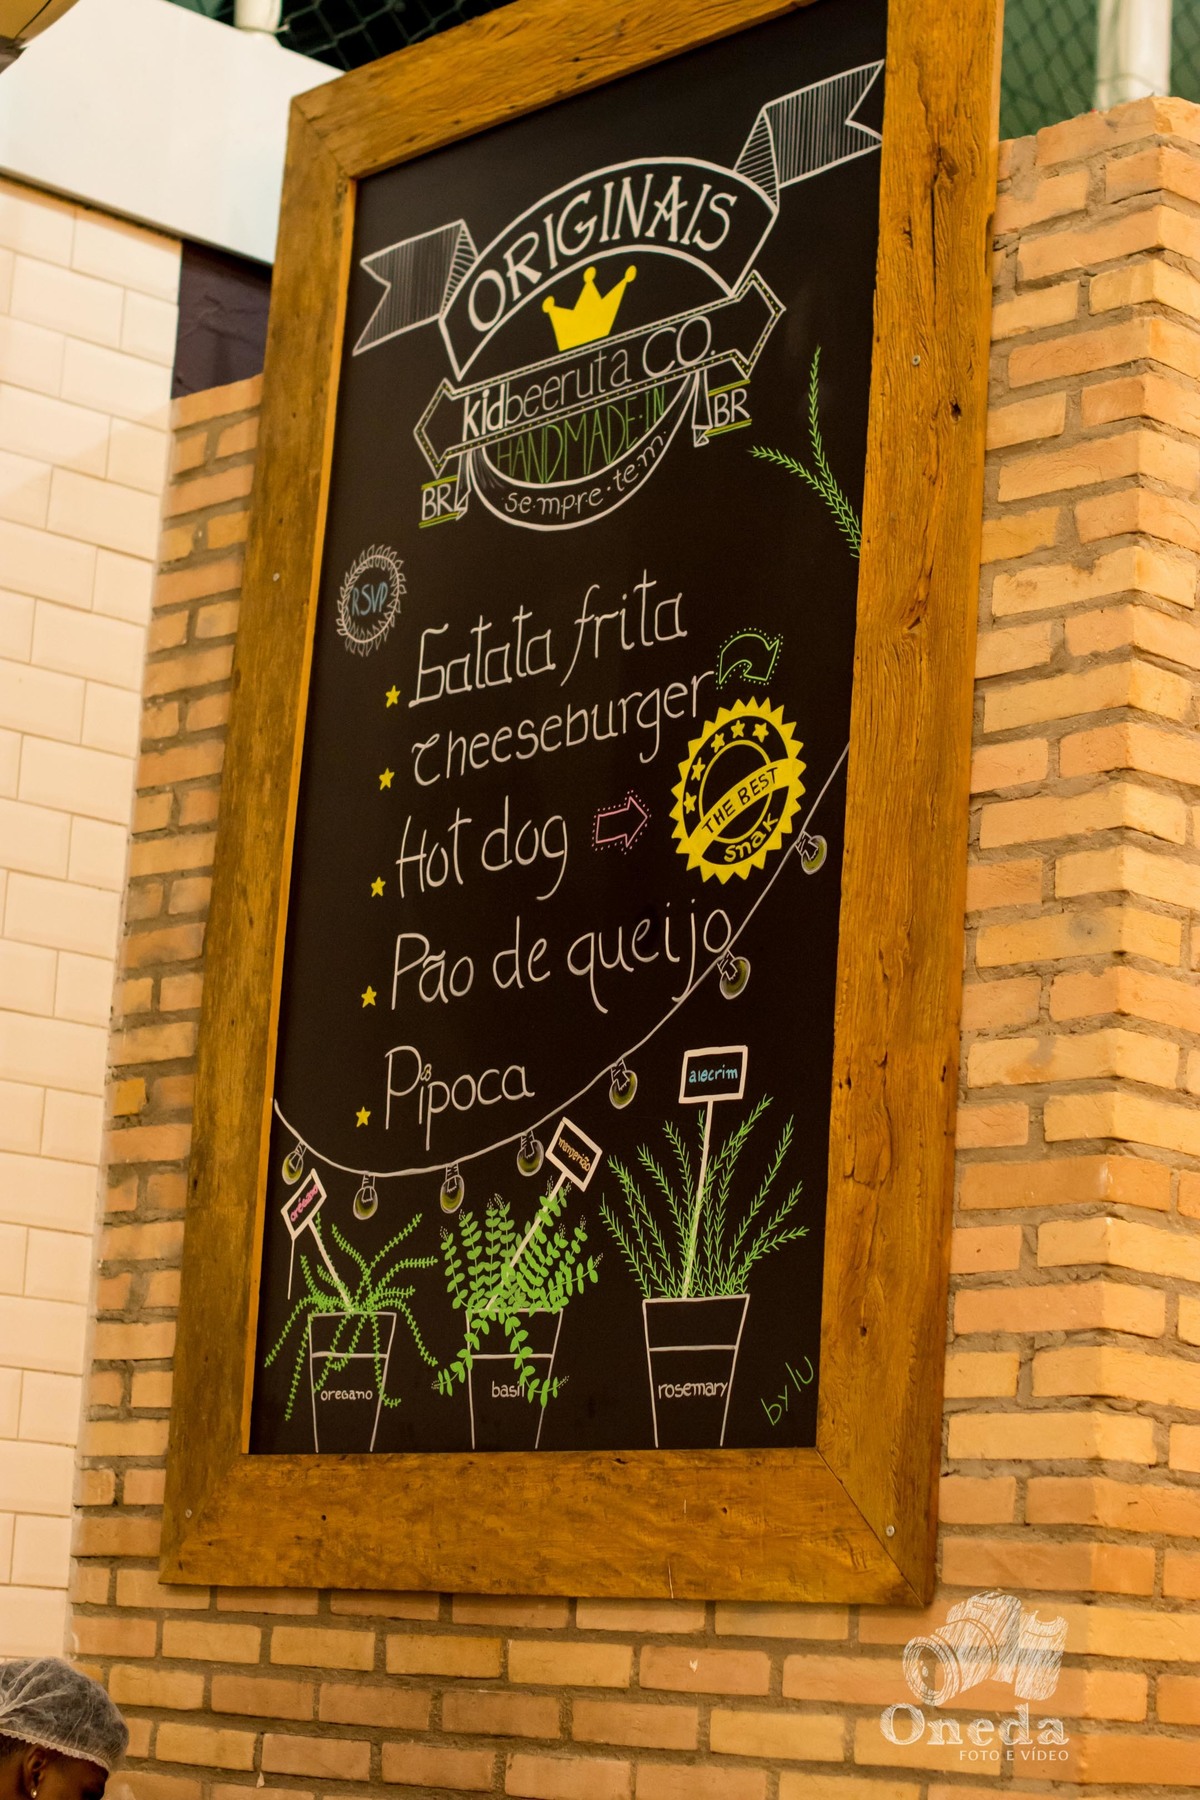 ORIGINAIS
kidbeeruta CO.
HANDMADE·IN
BR
BR
sempre·tem
RSVP
batata frita
cheeseburger
Hot dog
THE BEST
snak
Pão de queijo
Pipoca
alecrim
manjericão
orégano
oregano
basil
rosemary
by lu
Oneda
FOTO E VÍDEO